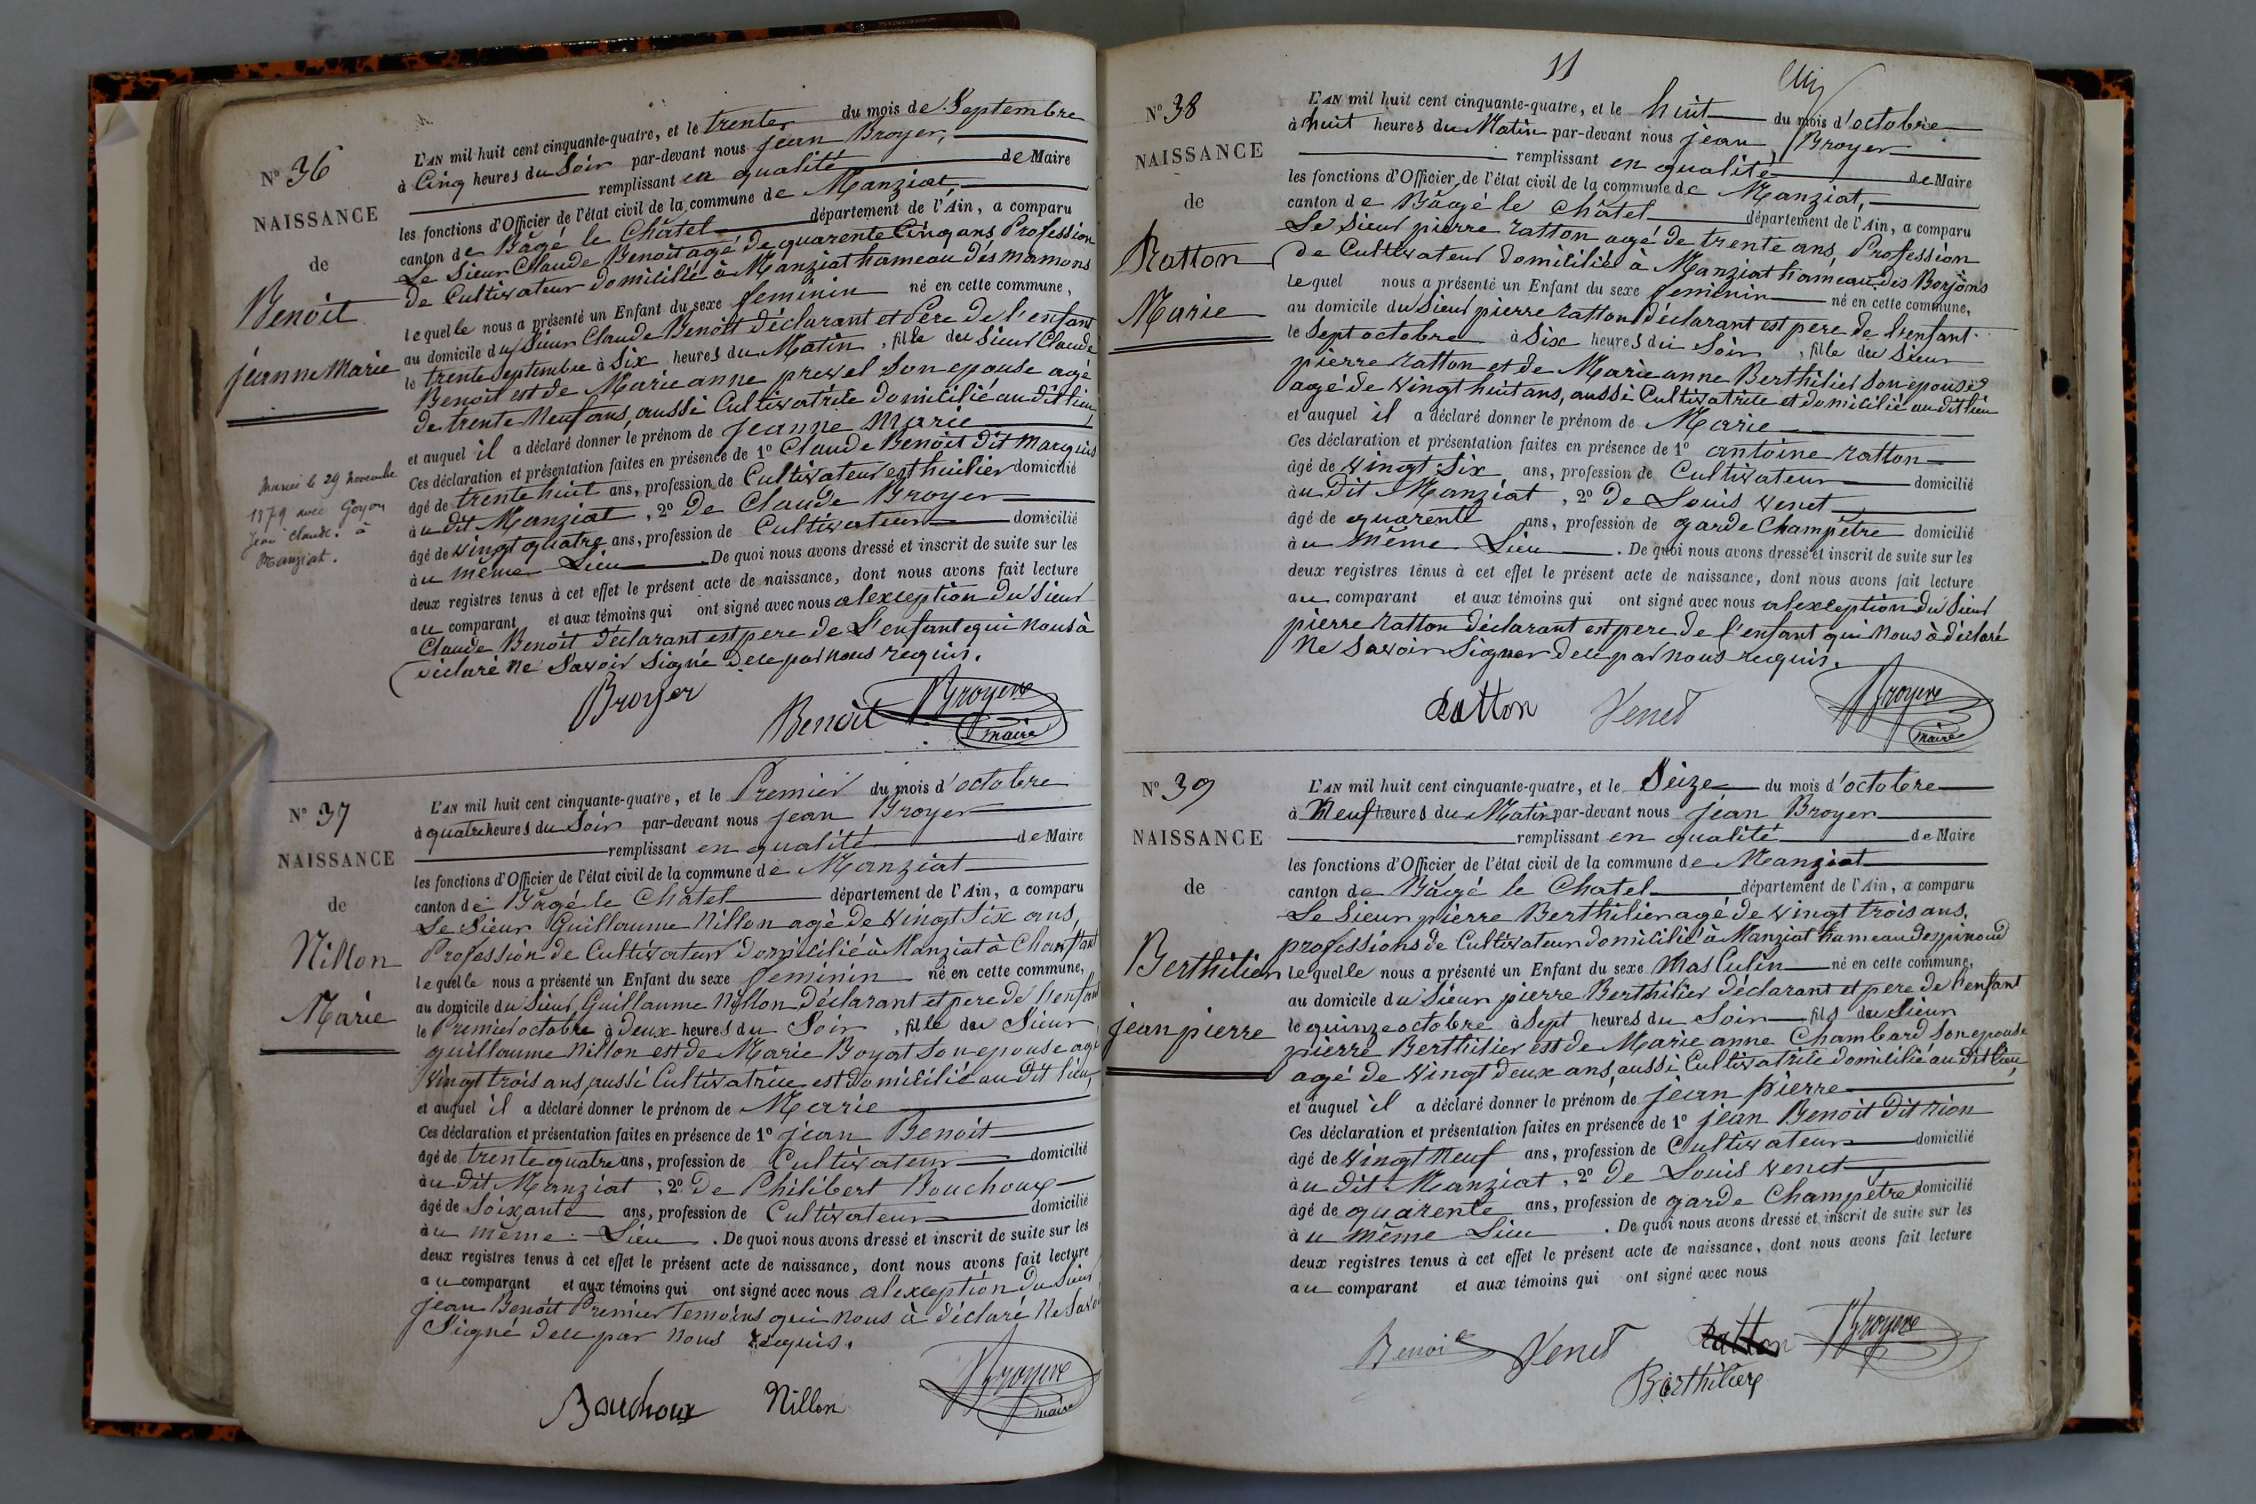 N° 36
NAISSANCE
de
Benoit
jeanne Marie
Marié le 29 Novembre
1879 avec Goyon
Jean Claude à
Manziat.
L'AN mil huit cent cinquante-quatre, et le trente du mois de Septembre
à Cinq heures du Soir par-devant nous jean Broyer,
remplissant en qualité de Maire
les fonctions d'Officier de l'état civil de la commune de Manziat,
canton de Bâgé le Châtel département de l'Ain, a comparu
Le Sieur Claude Benoit agé de quarente Cinq ans Profession
de Cultivateur domicilié à Manziat hameau des mamons
lequelle nous a présenté un Enfant du sexe feminin né en cette commune,
au domicile du Sieur Claude Benoit déclarant et Père de l'enfant
le trente Septembre à Six heures du Matin, fille du Sieur Claude
Benoit est de Marie anne prevel son epouse agé
de trente Neuf ans, aussi Cultivatrice domicilié au dit lieu,
et auquel il a déclaré donner le prénom de jeanne Marie
Ces déclaration et présentation faites en présence de 1° Claude Benoit dit Marquis
âgé de trente huit ans, profession de Cultivateur est huilier domicilié
à u dit Manziat, 2° de Claude Broyer
âgé de vingt quatre ans, profession de Cultivateur domicilié
à u même Lieu. De quoi nous avons dressé et inscrit de suite sur les
deux registres tenus à cet effet le présent acte de naissance, dont nous avons fait lecture
au comparant et aux témoins qui ont signé avec nous alexception du Sieur
Claude Benoit déclarant est pere de L'enfant qui nous à
déclaré ne Savoir Signé dece par nous requis.
Broyer
Benoit Broyere
maire
N° 37
NAISSANCE
de
Nillon
Marie
L'AN mil huit cent cinquante-quatre, et le Premier du mois d'octobre
à quatre heures du Soir par-devant nous jean Broyer
remplissant en qualité de Maire
les fonctions d'Officier de l'état civil de la commune de Manziat
canton de Bâgé le Châtel département de l'Ain, a comparu
Le Sieur Guillaume Nillon agé de vingt Six ans,
Profession de Cultivateur domicilié à Manziat à Chanfant
lequelle nous a présenté un Enfant du sexe feminin né en cette commune,
au domicile du Sieur Guillaume Nillon déclarant et pere de l'enfant
le Premier octobre à deux heures du Soir, fille du Sieur
guillaume Nillon est de Marie Boyat Son epouse agé
vingt trois ans, aussi Cultivatrice est domicilié au dit lieu,
et auquel il a déclaré donner le prénom de Marie
Ces déclaration et présentation faites en présence de 1° jean Benoit
âgé de trente quatre ans, profession de Cultivateur domicilié
à u dit Manziat, 2° de Philibert Bouchoux
âgé de Soixante ans, profession de Cultivateur domicilié
à u même Lieu. De quoi nous avons dressé et inscrit de suite sur les
deux registres tenus à cet effet le présent acte de naissance, dont nous avons fait lecture
au comparant et aux témoins qui ont signé avec nous alexception du Sieur
jean Benoit Premier temoins qui nous à déclaré Ne Savoir
Signé dece par nous requis.
Bouchoux Nillon Broyere
maire
11
N° 38
NAISSANCE
de
Ratton
Marie
L'AN mil huit cent cinquante-quatre, et le huit du mois d'octobre
à huit heures du Matin par-devant nous jean Broyer
remplissant en qualité de Maire
les fonctions d'Officier de l'état civil de la commune de Manziat,
canton de Bâgé le Châtel département de l'Ain, a comparu
Le Sieur pierre ratton agé de trente ans, Profession
de Cultivateur domicilié à Manziat hameau des Borjons
lequel nous a présenté un Enfant du sexe feminin né en cette commune,
au domicile du Sieur pierre ratton déclarant est pere de l'enfant
le Sept octobre à Six heures du Soir, fille du Sieur
pierre ratton et de Marie anne Berthilier Son epouse
agé de vingt huit ans, aussi Cultivatrice et domicilié au dit lieu
et auquel il a déclaré donner le prénom de Marie
Ces déclaration et présentation faites en présence de 1° antoine ratton
âgé de vingt Six ans, profession de Cultivateur domicilié
à u dit Manziat, 2° de Louis venet
âgé de quarente ans, profession de garde Champêtre domicilié
à u même Lieu. De quoi nous avons dressé et inscrit de suite sur les
deux registres tenus à cet effet le présent acte de naissance, dont nous avons fait lecture
au comparant et aux témoins qui ont signé avec nous alexception du Sieur
pierre ratton déclarant est pere de l'enfant qui nous à déclaré
Ne Savoir Signer dece par nous requis.
Ratton Venet Broyere
maire
N° 39
NAISSANCE
de
Berthilier
jean pierre
L'AN mil huit cent cinquante-quatre, et le Seize du mois d'octobre
à Neuf heures du Matin par-devant nous jean Broyer
remplissant en qualité de Maire
les fonctions d'Officier de l'état civil de la commune de Manziat
canton de Bâgé le Chatel département de l'Ain, a comparu
Le Sieur pierre Berthilier agé de vingt trois ans,
professions de Cultivateur domicilié à Manziat hameau despinoud
lequelle nous a présenté un Enfant du sexe Masculin né en cette commune,
au domicile du Sieur pierre Berthilier déclarant et pere de l'enfant
le quinze octobre à Sept heures du Soir fils du Sieur
pierre Berthilier est de Marie anne Chambard Son epouse
agé de vingt deux ans, aussi Cultivatrice domicilié au dit lieu,
et auquel il a déclaré donner le prénom de jean pierre
Ces déclaration et présentation faites en présence de 1° jean Benoit dit rion
âgé de vingt Neuf ans, profession de Cultivateur domicilié
à u dit Manziat, 2° de Louis venet
âgé de quarente ans, profession de garde Champêtre domicilié
à u même Lieu. De quoi nous avons dressé et inscrit de suite sur les
deux registres tenus à cet effet le présent acte de naissance, dont nous avons fait lecture
au comparant et aux témoins qui ont signé avec nous
Benoit Venet Ratton Broyere
Berthilier